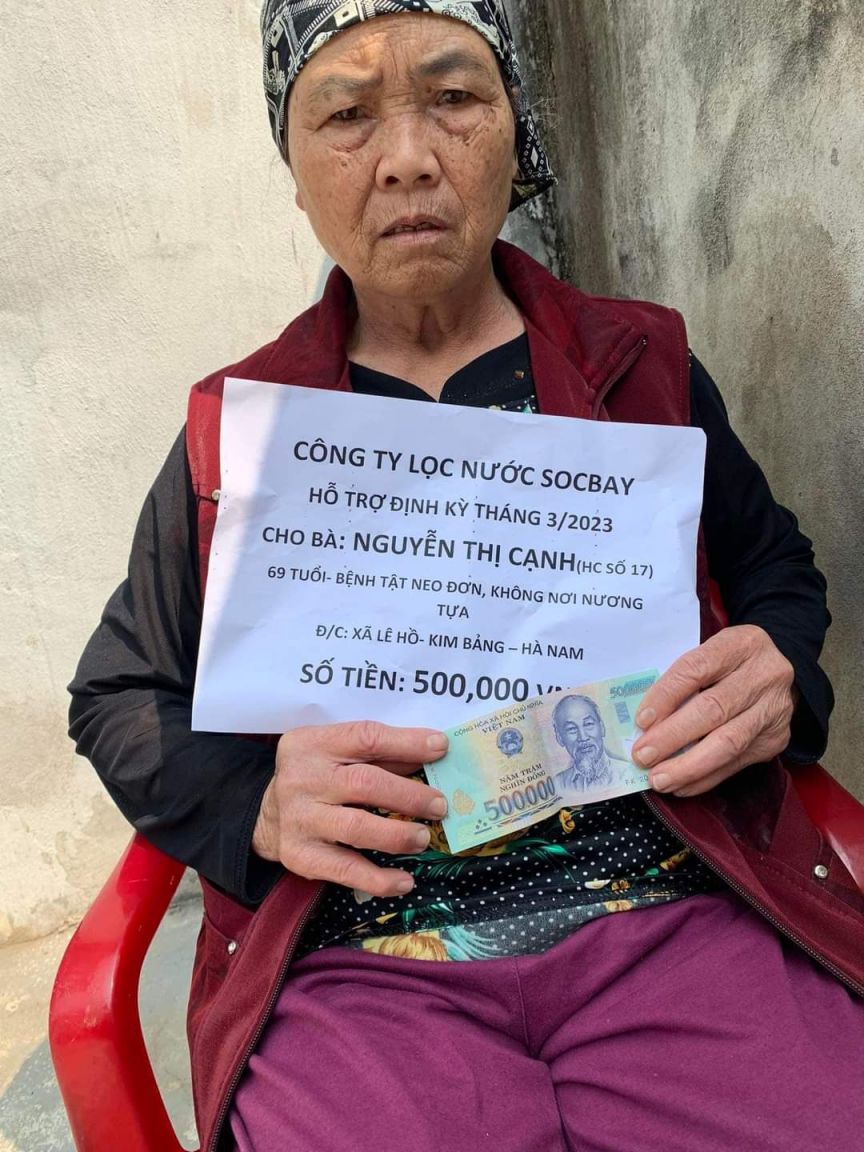 CÔNG TY LỌC NƯỚC SOCBAY
HỖ TRỢ ĐỊNH KỲ THÁNG 3/2023
CHO BÀ: NGUYỄN THỊ CẠNH(HC SỐ 17)
69 TUỔI- BỆNH TẬT NEO ĐƠN, KHÔNG NƠI NƯƠNG
TỰA
Đ/C: XÃ LÊ HỒ- KIM BẢNG – HÀ NAM
SỐ TIỀN: 500,000
CỘNG HÒA XÃ HỘI CHỦ NGHĨA
VIỆT NAM
500000
NĂM TRĂM
NGHÌN ĐỒNG
500000